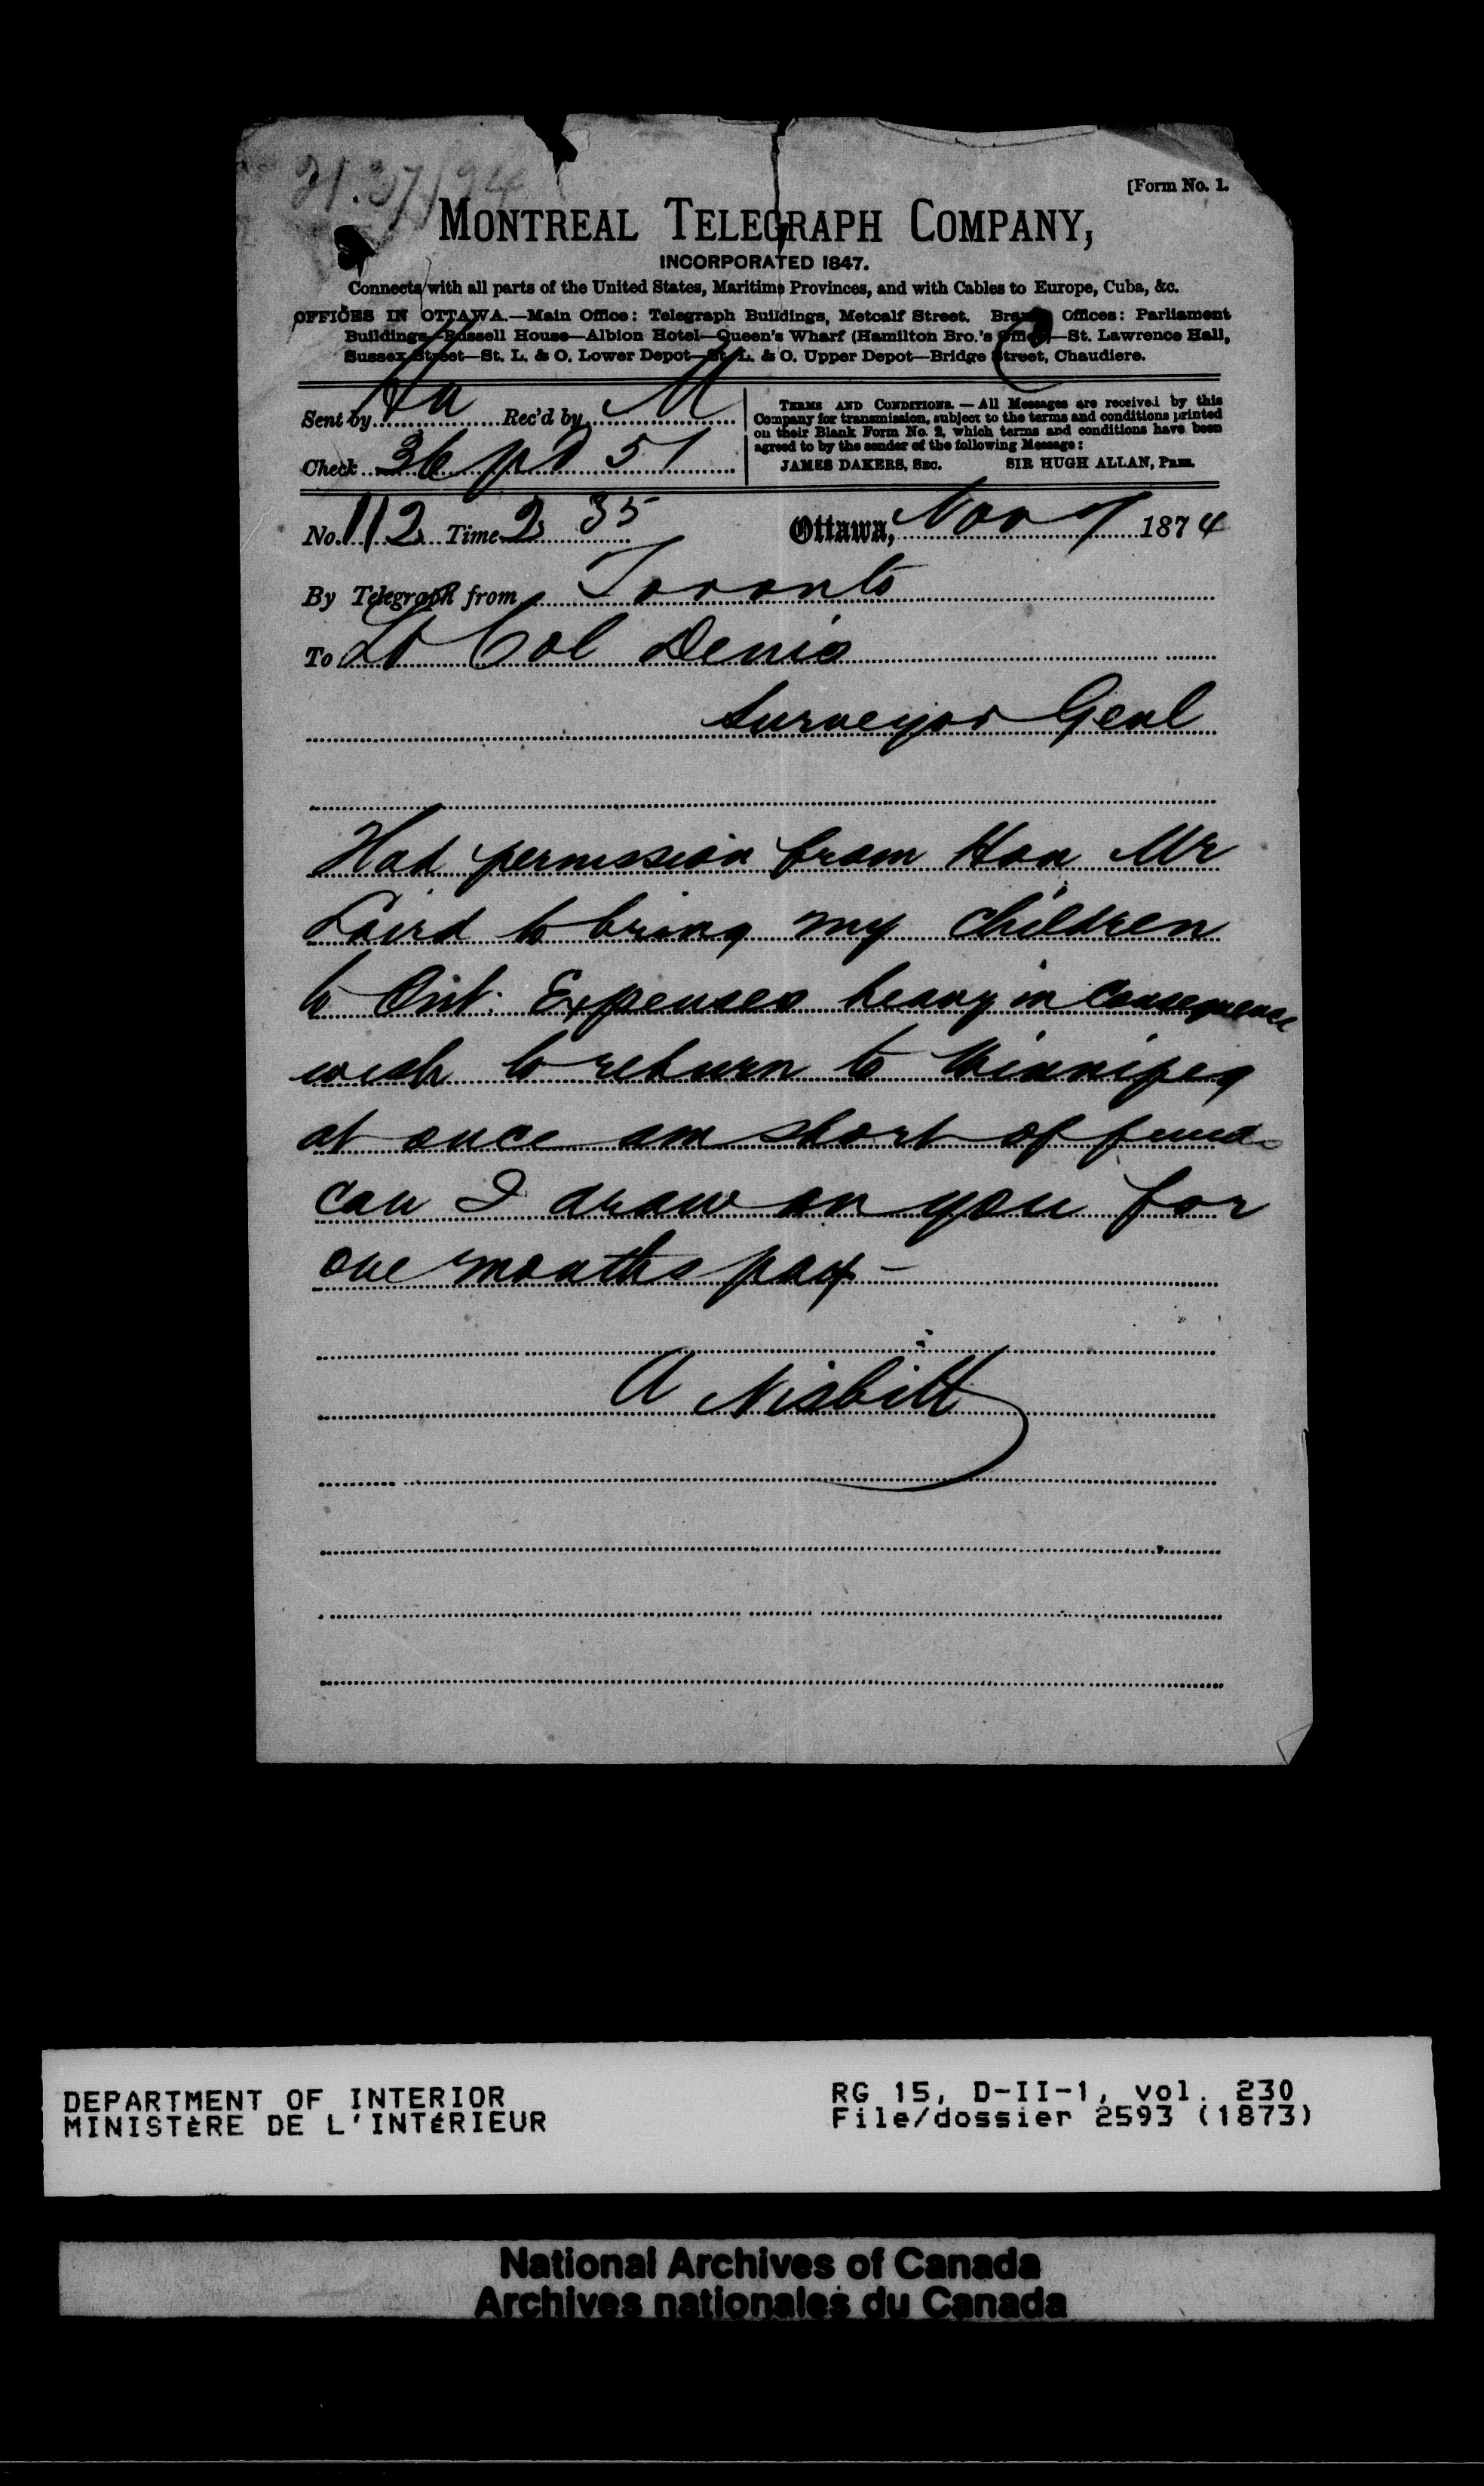 [Form No. 1.
MONTREAL TELEGRAPH COMPANY,
INCORPORATED 1847.
Connects with all parts of the United States, Maritime Provinces, and with Cables to Europe, Cuba, &c.
OFFICES IN OTTAWA.—Main Office: Telegraph Buildings, Metcalf Street. Branch Offices: Parliament
Buildings—Russell House—Albion Hotel—Queen's Wharf (Hamilton Bro.'s Office)—St. Lawrence Hall,
Sussex Street—St. L. & O. Lower Depot—St. L. & O. Upper Depot—Bridge Street, Chaudiere.
Sent by Rec'd by M
Check 36 pd 51
TERMS AND CONDITIONS.—All Messages are received by this
Company for transmission, subject to the terms and conditions printed
on their Blank Form No. 2, which terms and conditions have been
agreed to by the sender of the following Message:
JAMES DAKERS, SEC. SIR HUGH ALLAN, PRES.
No. 112 Time 2 35 Ottawa, Nov 7 1874
By Telegraph from Toronto
To Lt Col Denis
Surveyor Genl
Had permission from Hon Mr
Laird to bring my children
to Ont. Expenses heavy in consequence
wish to return to Winnipeg
at once am short of funds
can I draw on you for
one months pay –
A Nisbitt
DEPARTMENT OF INTERIOR
MINISTÈRE DE L'INTÉRIEUR
RG 15, D-II-1, vol. 230
File/dossier 2593 (1873)
National Archives of Canada
Archives nationales du Canada